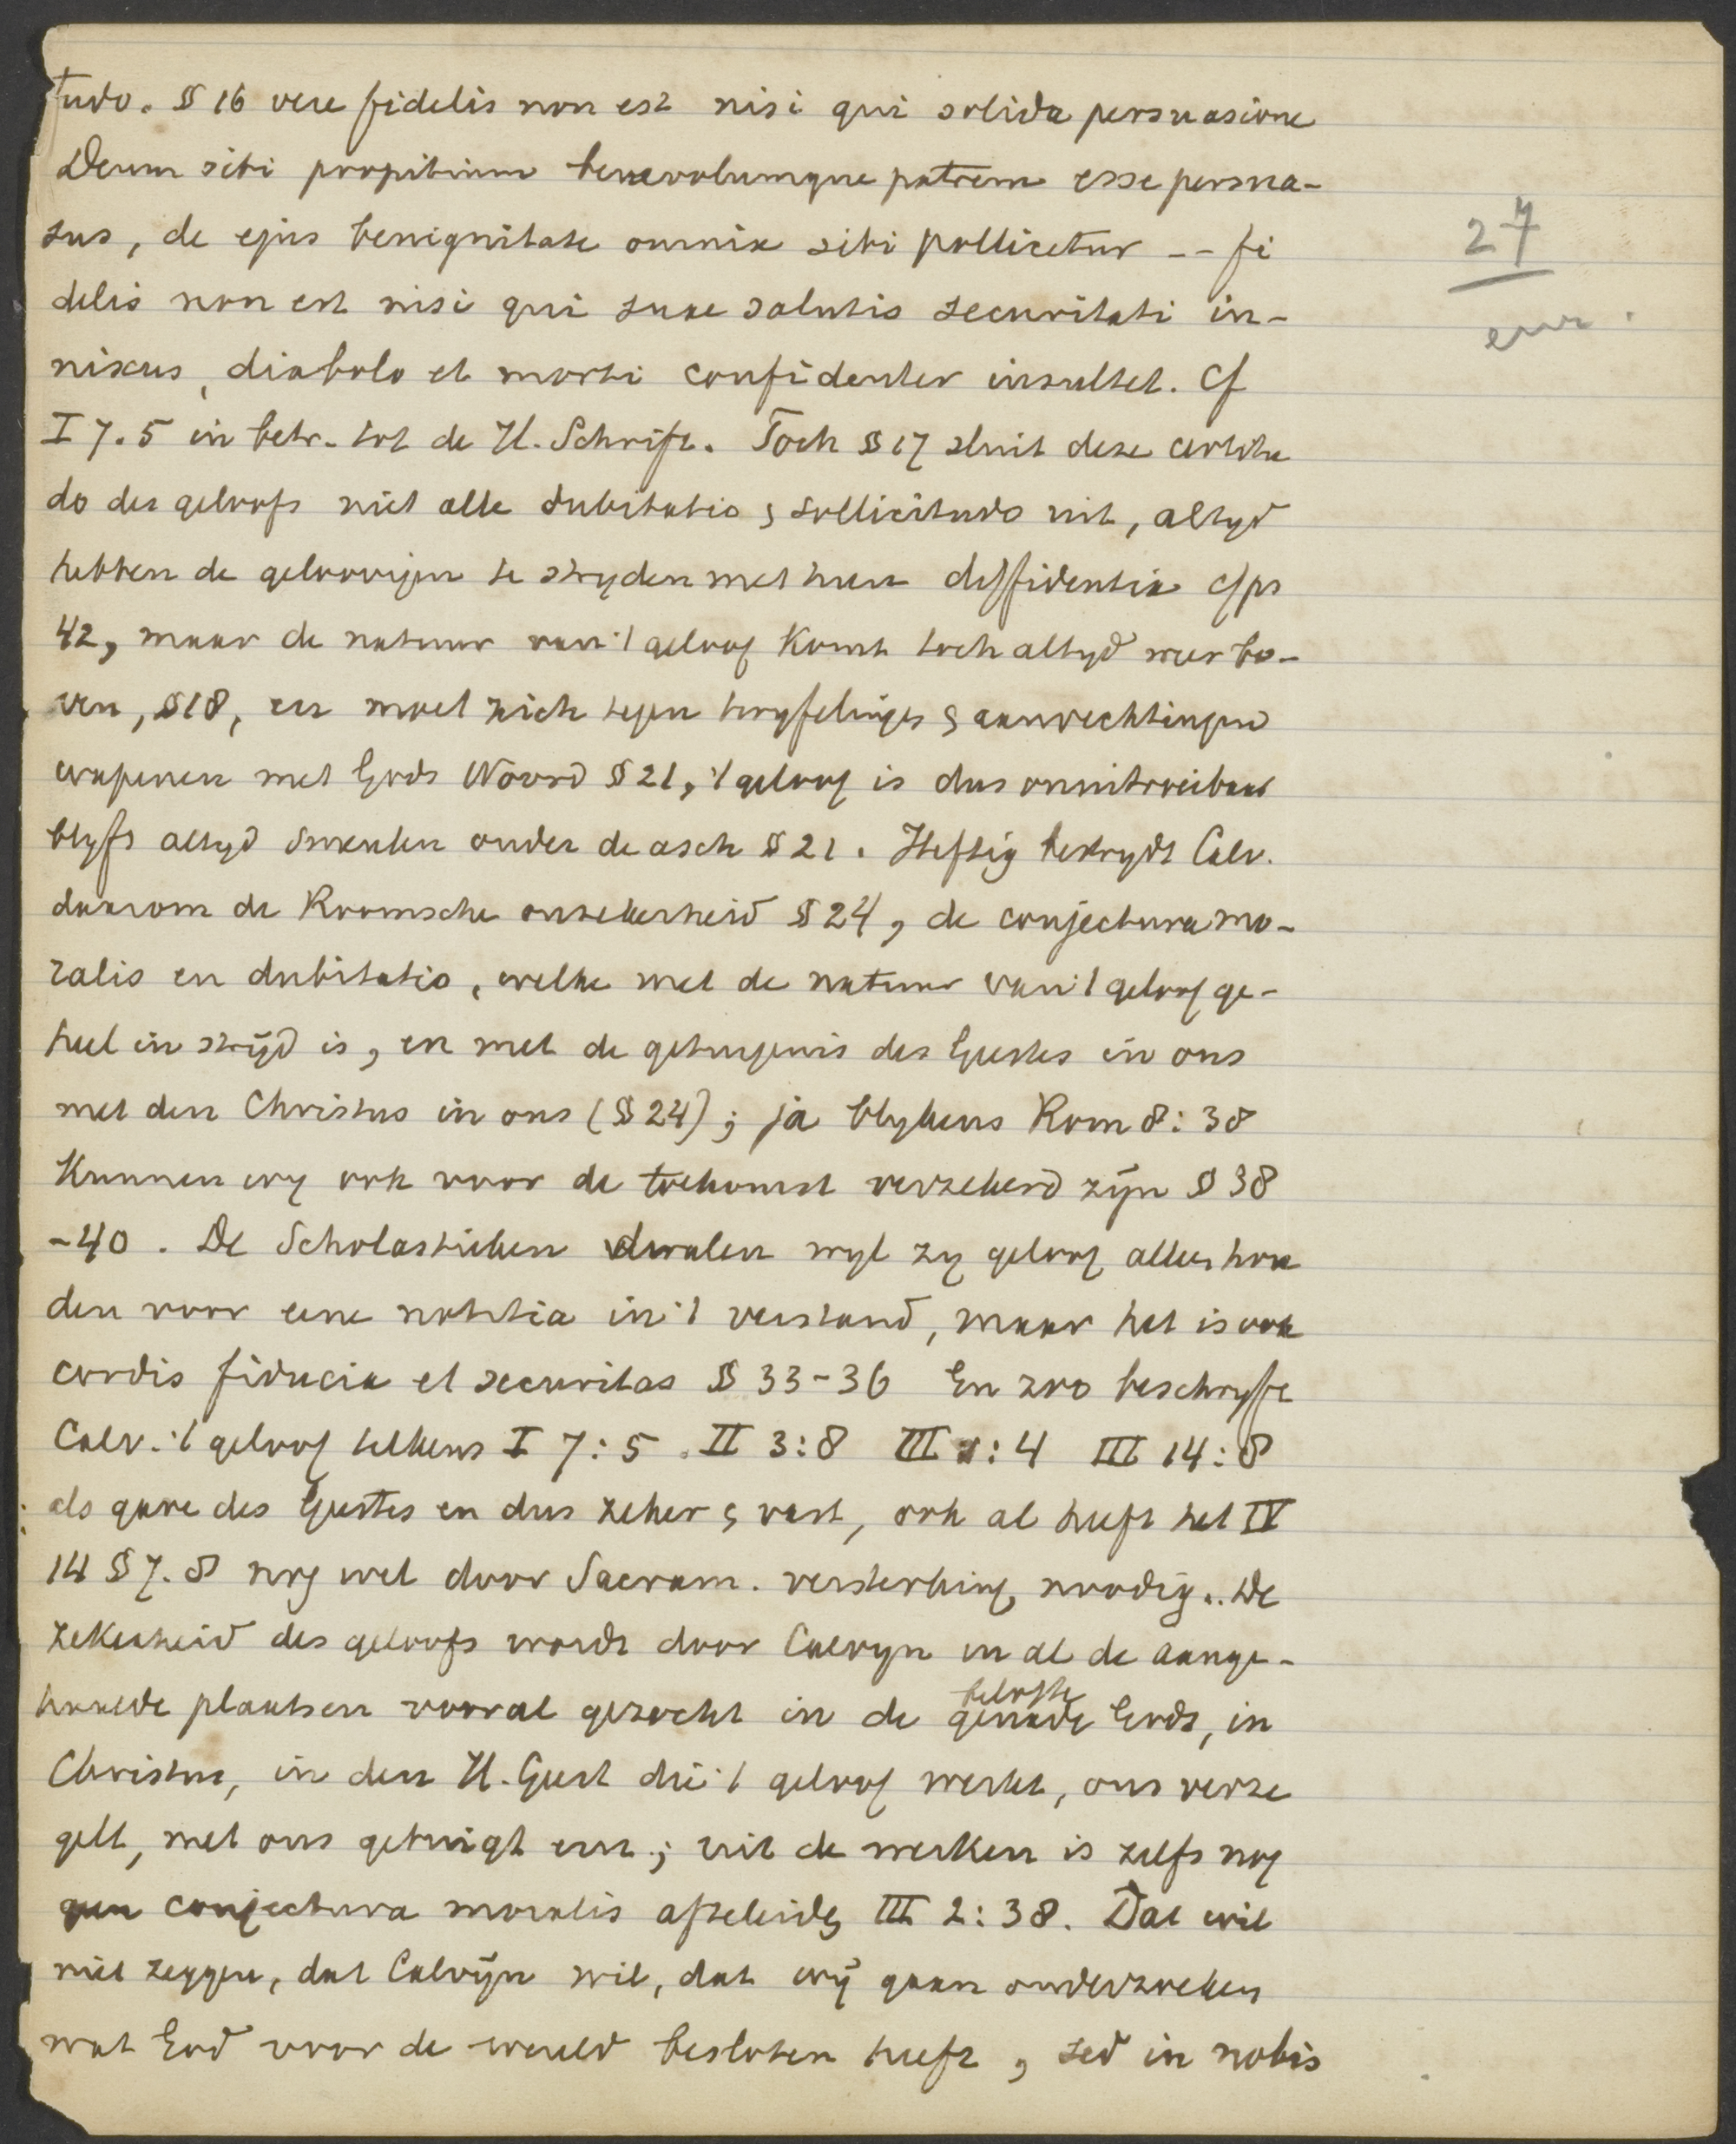 tudo. § 16 vere fidelis non est nisi qui solida persuasione
Deum sibi propitium benevolumque patrem esse persua-
sus, de ejus benignitate omnia sibi pollicetur -- fi
delis non est nisi qui suae salutis securitati in-
nixus, diabolo et morti confidenter insultet. Cf
I 7.5 in betr. tot de H. Schrift. Toch § 17 sluit deze certitu
do des geloofs niet alle dubitatio & sollicitudo uit, altyd
hebben de geloovigen te stryden met hun diffidentia cf ps
42, maar de natuur van 't geloof komt toch altyd weer bo-
ven, § 18, en moet zich tegen twyfelingen & aanvechtingen
wapenen met Gods Woord § 21, 't geloof is dus onuitroeibaar
blyft altyd smeulen onder de asch § 21. Heftig bestrydt Calv.
daarom de Roomsche onzekerheid § 24, de conjectura mo-
ralis en dubitatio, welke met de natuur van 't geloof ge-
heel in stryd is, en met de getuigenis des Geestes in ons
met den Christus in ons (§ 24); ja blykens Rom 8:38
kunnen wy ook voor de toekomst verzekerd zyn § 38
-40. De Scholastieken dwalen wyl zy geloof alleen hou
den voor eene notitia in 't verstand, maar het is ook
cordis fiducia et securitas § 33-36 En zoo beschryft
Calv. 't geloof telkens I 7:5. II 3:8 III 1:4 III 14:8
als gave des Geestes en dus zeker & vast, ook al heeft het IV
14 § 7.8 nog wel door Sacram. versterking noodig. De
zekerheid des geloofs wordt door Calvyn in al de aange-
haalde plaatsen vooral gezocht in de genade Gods, in
belofte
Christus, in den H. Geest die 't geloof werkt, ons verze
gelt, met ons getuigt enz.; uit de werken is zelfs nog
geen conjectura moralis afteleiden III 2:38. Dat wil
niet zeggen, dat Calvyn wil, dat wy gaan onderzoeken
wat God voor de wereld besloten heeft, sed in nobis
27